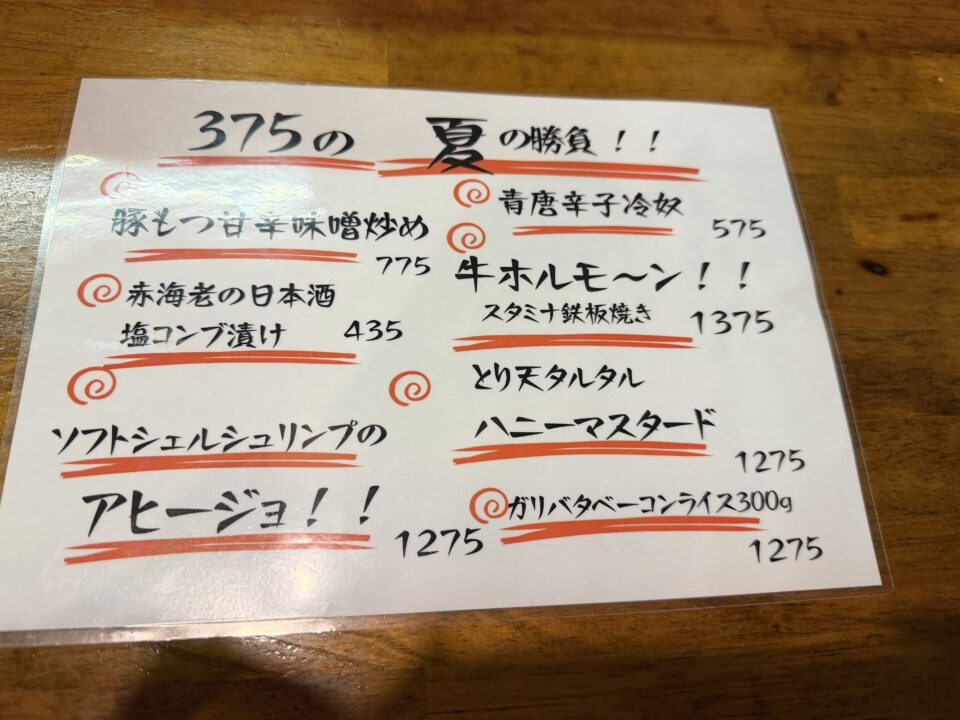 375の 夏の勝負！！
豚もつ甘辛味噌炒め
775
赤海老の日本酒
塩コンブ漬け 435
ソフトシェルシュリンプの
アヒージョ！！
1275
青唐辛子冷奴
575
牛ホルモ〜ン！！
スタミナ鉄板焼き 1375
とり天タルタル
ハニーマスタード
1275
ガリバタベーコンライス300g
1275